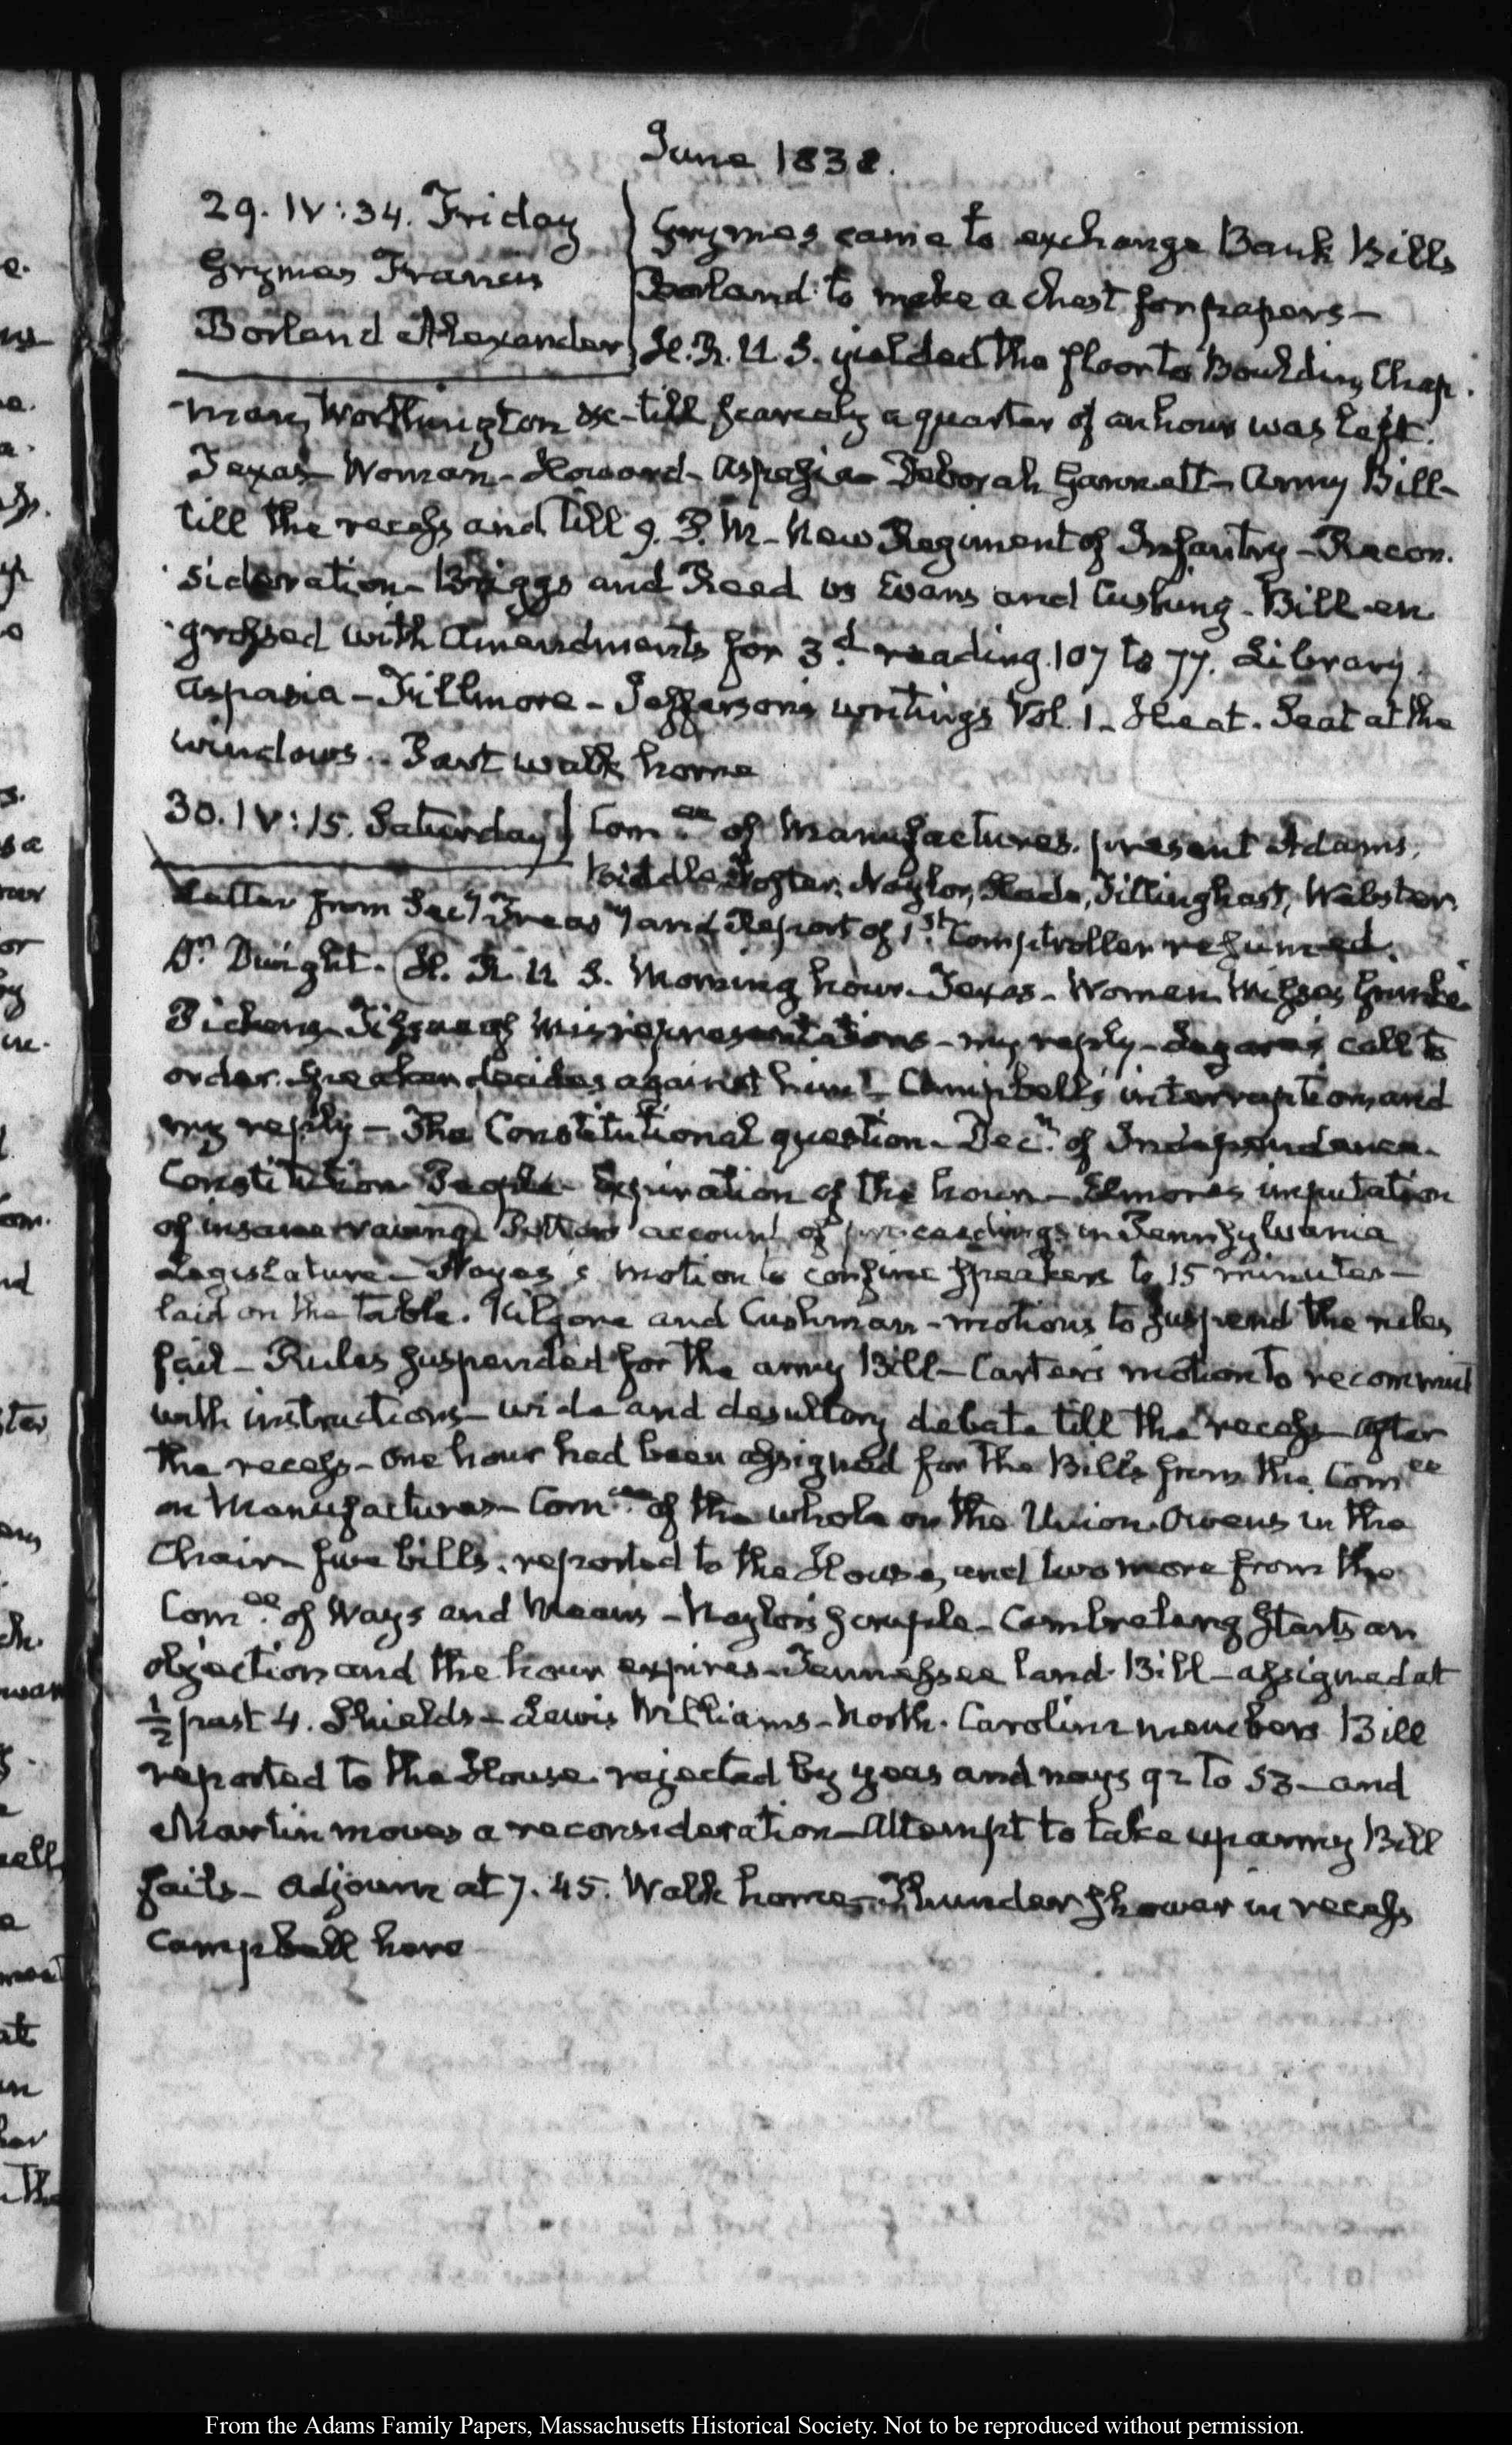 June 1838.
29. IV:34. Friday
Grymes Francis
Borland Alexander
Grymes came to exchange Bank Bills
Borland to make a chest for papers—
H.R.U.S. yielded the floor to Bouldin, Chap-
man, Worthington &c—till scarcely a quarter of an hour was left.
Texas—Woman—Howard—Aspasia—Deborah Gannett—Army Bill—
till the recess and till 9. P.M—New Regiment of Infantry—Recon-
sideration—Briggs and Reed vs Evans and Cushing—Bill en-
grossed with Amendments for 3d. reading. 107 to 77. Library.
Aspasia—Fillmore—Jefferson's writings Vol. 1—Heat. Seat at the
windows—Part walk home
30. IV:15. Saturday
Comee. of Manufactures. present Adams.
Biddle, Foster, Naylor, Slade, Tillinghast, Webster.
Letter from Secy Treasy and Report of 1st. Comptroller resumed.
Dr. Dwight. H.R.U.S. Morning hour—Texas—Women. Misses Grimke
Pickens—Tissue of misrepresentations—my reply—Legare's call to
order. Speaker decides against him—Campbell's interruption and
my reply—The Constitutional question—Decn. of Independence.
Constitution—People—Expiration of the hour—Elmore's imputation
of insane raving. Potter's account of proceedings in Pennsylvania
Legislature—Noyes's motion to confine speakers to 15 minutes—
laid on the table. Kilgore and Cushman—motions to suspend the rules
fail—Rules suspended for the army Bill—Carter's motion to recommit
with instructions—wide and desultory debate till the recess—after
the recess—One hour had been assigned for the Bills from the Comee
on Manufactures—Comee. of the whole on the Union. Owens in the
Chair—five bills. reported to the House, and two more from the
Comee. of Ways and Means—Naylor's scruple—Cambreleng starts an
objection and the hour expires—Tennessee land Bill—assigned at
½ past 4. Shields—Lewis Williams—North Carolina members Bill
reported to the House. rejected by yeas and nays 92 to 53—and
Martin moves a reconsideration—Attempt to take up army Bill
fails—Adjourn at 7.45. Walk home—Thunder shower in recess
Campbell here
From the Adams Family Papers, Massachusetts Historical Society. Not to be reproduced without permission.